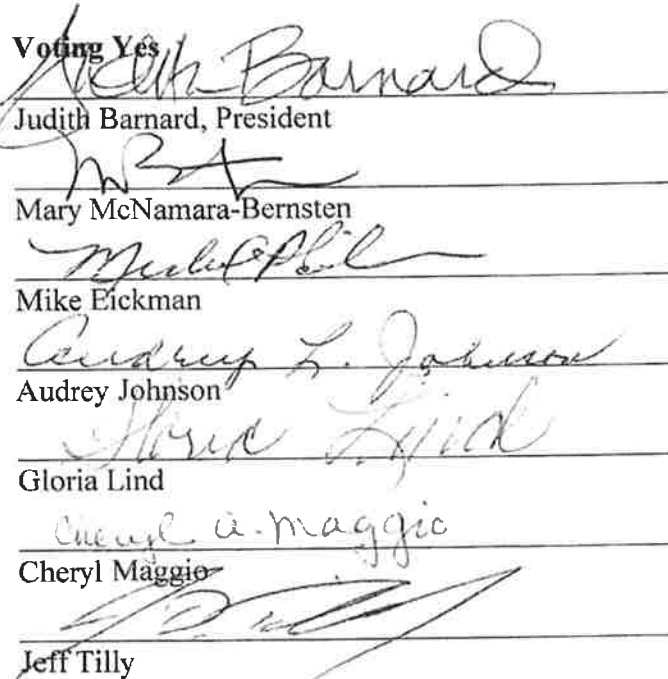 Voting Yes
Judith Barnard
Judith Barnard, President
Mary McNamara-Bernsten
Mike Eickman
Audrey L. Johnson
Audrey Johnson
Gloria Lind
Gloria Lind
Cheryl A. Maggio
Cheryl Maggio
Jeff Tilly